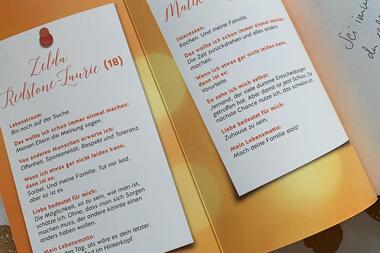 Zelda
Redstone-Laurie (18)
Lebenstraum:
Bin noch auf der Suche.
Das wollte ich schon immer einmal machen:
Meinen Eltern die Meinung sagen.
Von anderen Menschen erwarte ich:
Offenheit, Spontanität, Respekt und Toleranz.
Wenn ich etwas gar nicht leiden kann,
dann ist es:
Sorbet. Und meine Familie. Tut mir leid,
aber so ist es.
Liebe bedeutet für mich:
Die Möglichkeit, so zu sein, wie man ist,
schätze ich. Ohne, dass man sich Sorgen
machen muss, der andere könnte einen
anders haben wollen.
Mein Lebensmotto:
den Tag, als wäre es dein letzter.
im Hinterkopf.
Interessen:
Kochen. Und meine Familie.
Das wollte ich schon immer einmal machen:
Die Zeit zurückdrehen und alles anders
machen.
Wenn ich etwas gar nicht leiden kann,
dann ist es:
Vorurteile.
So sehe ich mich selbst:
Jemand, der viele dumme Entscheidungen
getroffen hat. Aber damit ist jetzt Schluss. Die
nächste Chance nutze ich, das schwöre ich.
Liebe bedeutet für mich:
Zuhause zu sein.
Mein Lebensmotto:
Mach deine Familie stolz!